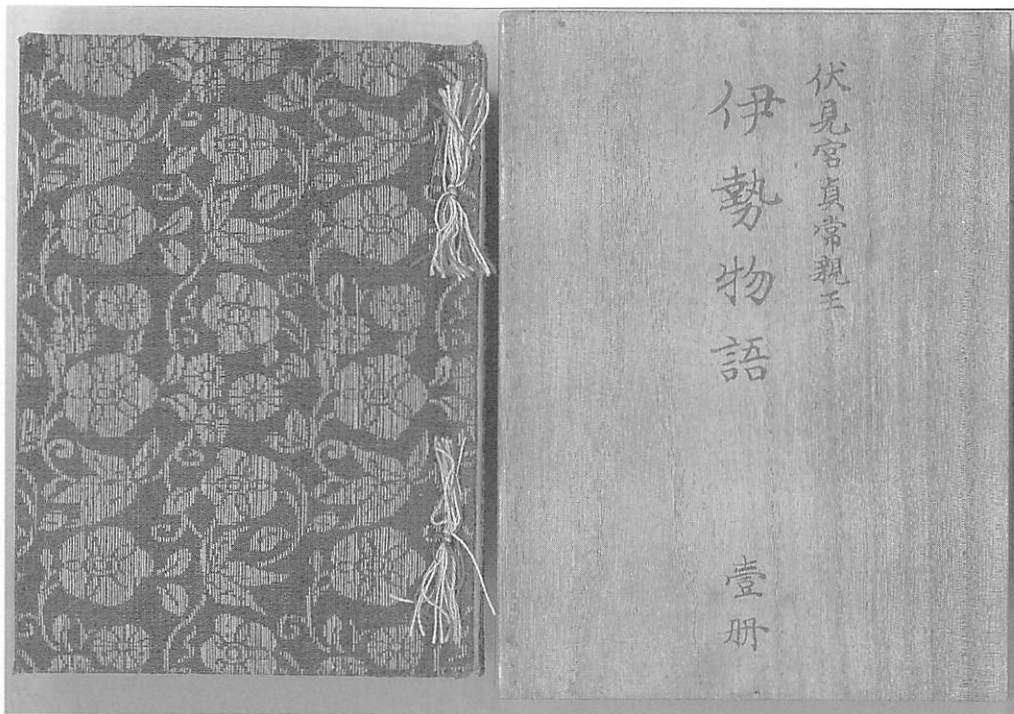 伏見宮貞常親王
伊勢物語
壹册